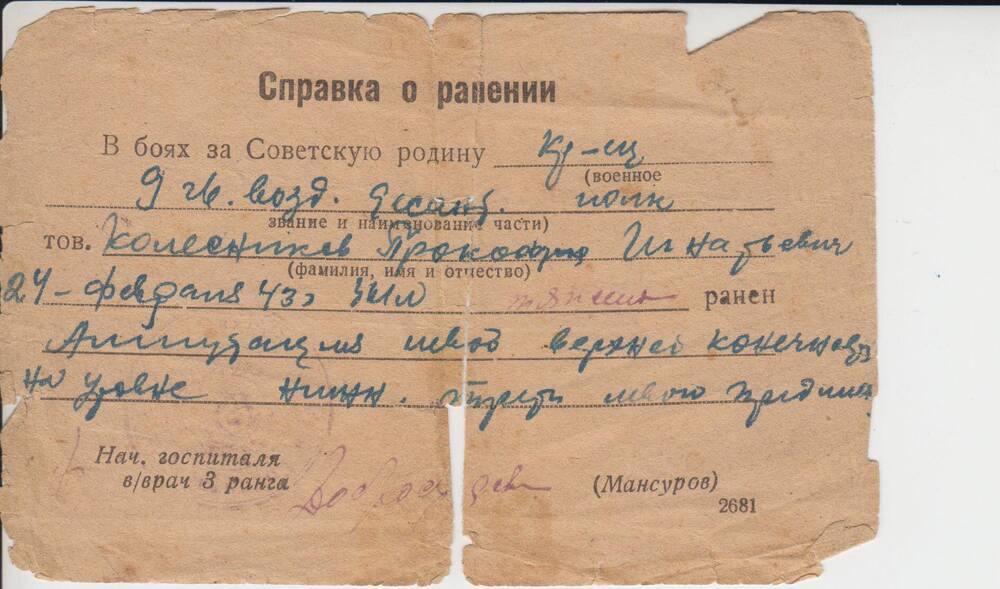 Справка о ранении
В боях за Советскую родину кр-ец
(военное
9 гв. возд. десант. полк
звание и наименование части)
тов. Колесников Прокофий Игнатьевич
(фамилия, имя и отчество)
24-февраля 43г был тяжело ранен
Ампутация левой верхней конечности
на уровне нижн. трети левого предплеч.
Нач. госпиталя
в/врач 3 ранга (Мансуров)
2681